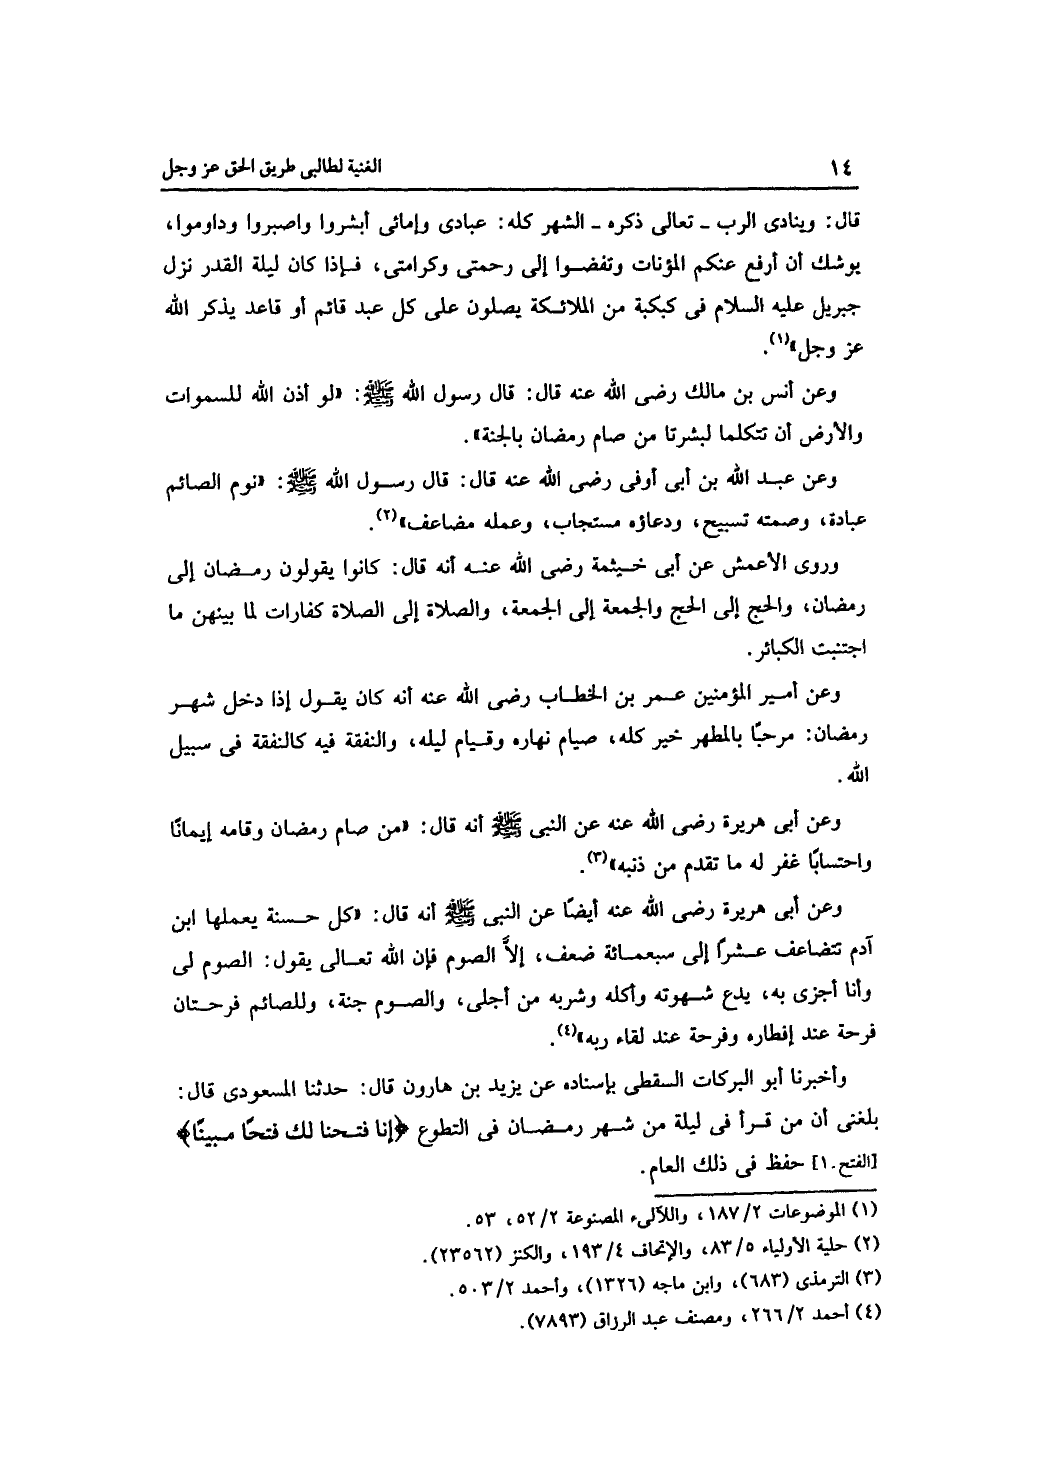 ١٤
الغنية لطالبى طريق الحق عز وجل
قال: وينادى الرب ـ تعالى ذكره ـ الشهر كله: عبادى وإمائى أبشروا واصبروا وداوموا،
يوشك أن أرفع عنكم المؤنات وتفضوا إلى رحمتى وكرامتى، فإذا كان ليلة القدر نزل
جبريل عليه السلام فى كبكبة من الملائكة يصلون على كل عبد قائم أو قاعد يذكر الله
عز وجل»(١).
وعن أنس بن مالك رضى الله عنه قال: قال رسول الله ﷺ: «لو أذن الله للسموات
والأرض أن تتكلما لبشرتا من صام رمضان بالجنة».
وعن عبد الله بن أبى أوفى رضى الله عنه قال: قال رسول الله ﷺ: «نوم الصائم
عبادة، وصمته تسبيح، ودعاؤه مستجاب، وعمله مضاعف»(٢).
وروى الأعمش عن أبى خيثمة رضى الله عنه أنه قال: كانوا يقولون رمضان إلى
رمضان، والحج إلى الحج والجمعة إلى الجمعة، والصلاة إلى الصلاة كفارات لما بينهن ما
اجتنبت الكبائر.
وعن أمير المؤمنين عمر بن الخطاب رضى الله عنه أنه كان يقول إذا دخل شهر
رمضان: مرحبًا بالمطهر خير كله، صيام نهاره وقيام ليله، والنفقة فيه كالنفقة فى سبيل
الله.
وعن أبى هريرة رضى الله عنه عن النبى ﷺ أنه قال: «من صام رمضان وقامه إيمانًا
واحتسابًا غفر له ما تقدم من ذنبه»(٣).
وعن أبى هريرة رضى الله عنه أيضًا عن النبى ﷺ أنه قال: «كل حسنة يعملها ابن
آدم تتضاعف عشرًا إلى سبعمائة ضعف، إلاَّ الصوم فإن الله تعالى يقول: الصوم لى
وأنا أجزى به، يدع شهوته وأكله وشربه من أجلى، والصوم جنة، وللصائم فرحتان
فرحة عند إفطاره وفرحة عند لقاء ربه»(٤).
وأخبرنا أبو البركات السقطى بإسناده عن يزيد بن هارون قال: حدثنا المسعودى قال:
بلغنى أن من قرأ فى ليلة من شهر رمضان فى التطوع ﴿إنا فتحنا لك فتحًا مبينًا﴾
[الفتح.١] حفظ فى ذلك العام.
(١) الموضوعات ١٨٧/٢، واللآلىء المصنوعة ٥٢/٢، ٥٣.
(٢) حلية الأولياء ٨٣/٥، والإتحاف ١٩٣/٤، والكنز (٢٣٥٦٢).
(٣) الترمذى (٦٨٣)، وابن ماجه (١٣٢٦)، وأحمد ٥٠٣/٢.
(٤) أحمد ٢٦٦/٢، ومصنف عبد الرزاق (٧٨٩٣).